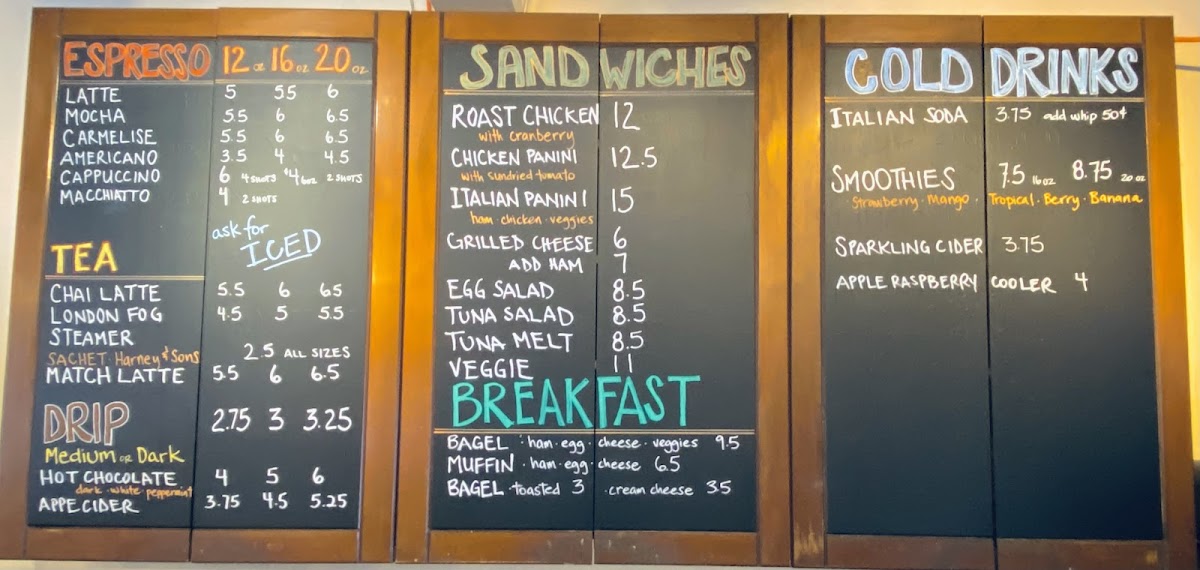 ESPRESSO 12 oz 16 oz 20 oz
LATTE 5 55 6
MOCHA 5.5 6 6.5
CARMELISE 5.5 6 6.5
AMERICANO 3.5 4 4.5
CAPPUCCINO 6 4 SHOTS $4 6oz 2 SHOTS
MACCHIATTO 4 2 SHOTS
ask for
ICED
TEA
CHAI LATTE 5.5 6 65
LONDON FOG 4.5 5 5.5
STEAMER
SACHET · Harney & Sons 2.5 ALL SIZES
MATCH LATTE 5.5 6 6.5
DRIP 2.75 3 3.25
Medium or Dark
HOT CHOCOLATE 4 5 6
dark · white · peppermint
APPE CIDER 3.75 4.5 5.25
SANDWICHES
ROAST CHICKEN 12
with cranberry
CHICKEN PANINI 12.5
with sundried tomato
ITALIAN PANINI 15
ham · chicken · veggies
GRILLED CHEESE 6
ADD HAM 7
EGG SALAD 8.5
TUNA SALAD 8.5
TUNA MELT 8.5
VEGGIE 11
BREAKFAST
BAGEL · ham · egg · cheese · veggies 9.5
MUFFIN · ham · egg · cheese 6.5
BAGEL · toasted 3 · cream cheese 3.5
COLD DRINKS
ITALIAN SODA 3.75 add whip 50¢
SMOOTHIES 7.5 16 oz 8.75 20 oz
· Strawberry · Mango · Tropical · Berry · Banana
SPARKLING CIDER 3.75
APPLE RASPBERRY COOLER 4